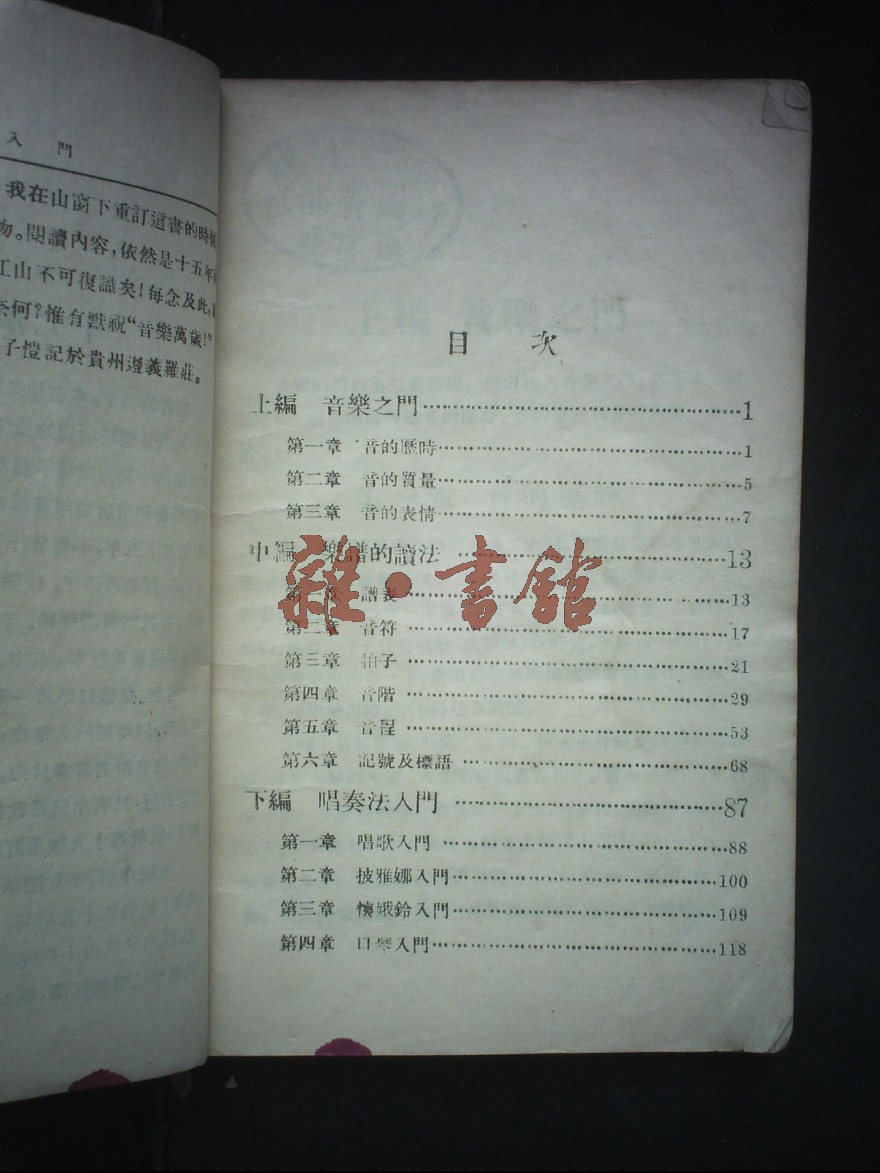 入門
我在山窗下重訂這書的時
物。閱讀內容，依然是十五年
江山不可復識矣！每念及此，
奈何？惟有默祝“音樂萬歲！”
子愷記於貴州遵義羅莊。
目次
上編 音樂之門……1
第一章 音的歷時……1
第二章 音的質量……5
第三章 音的表情……7
中編 樂譜的讀法……13
第一章 譜表……13
第二章 音符……17
第三章 拍子……21
第四章 音階……29
第五章 音程……53
第六章 記號及標語……68
下編 唱奏法入門……87
第一章 唱歌入門……88
第二章 披雅娜入門……100
第三章 懷娥鈴入門……109
第四章 口琴入門……118
雜·書館